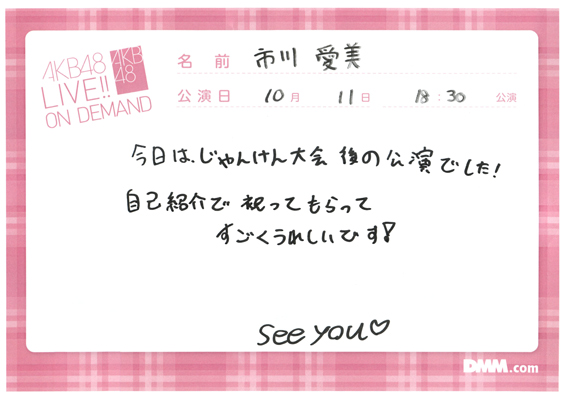 AKB48
LIVE!!
ON DEMAND
AKB
48
名 前 市川 愛美
公演日 10月 11日 18:30 公演
今日は、じゃんけん大会 後の公演でした!
自己紹介で 祝ってもらって
すごくうれしいです!
see you♡
DMM.com